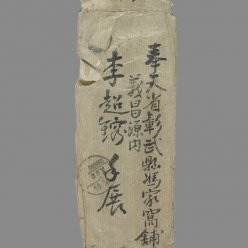 奉天省彰武縣馮家窩舖
義昌源内
李超鎔手展